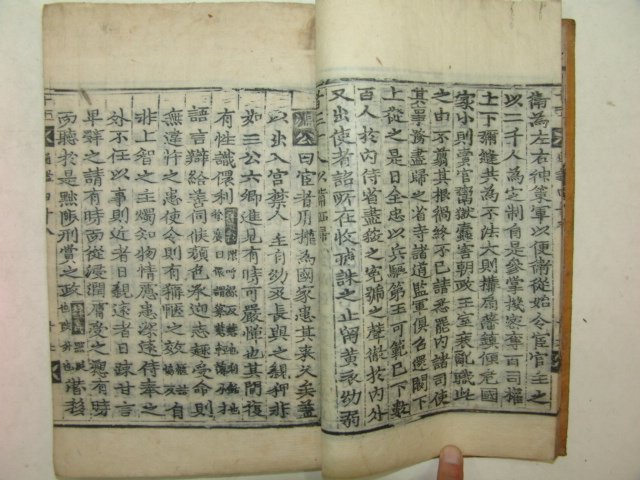 衛為左右神策軍以便衛從始令宦官主之
以二千人為定制自是參掌機密奪百司權
上下彌縫共為不法大則構扇藩鎮傾危國
家小則賣官鬻獄蠹害朝政王室衰亂職此
之由不翦其根禍終不已請悉罷內諸司使
其事務盡歸之省寺諸道監軍俱召還闕下
上從之是日全忠以兵驅第五可範已下數
百人於內侍省盡殺之冤號之聲徹於內外
又出使者詔所在收捕誅之止留黃衣幼弱
三十以備
溫公曰宦者用權為國家患其來久矣蓋
以出入宮禁人主自幼及長與之親狎非
如三公六卿進見有時可嚴憚也其間復
有性識儇利
語言辯給善伺候顏色承迎志趣受命則
無違忤之患使令則有稱愜之效自
非上智之主燭知物情慮患深遠侍奉之
外不任以事則近者日親遠者日疎甘言
卑辭之請有時而從浸潤膚受之愬有時
而聽於是黜陟刑賞之政潛移
通鑑四十八